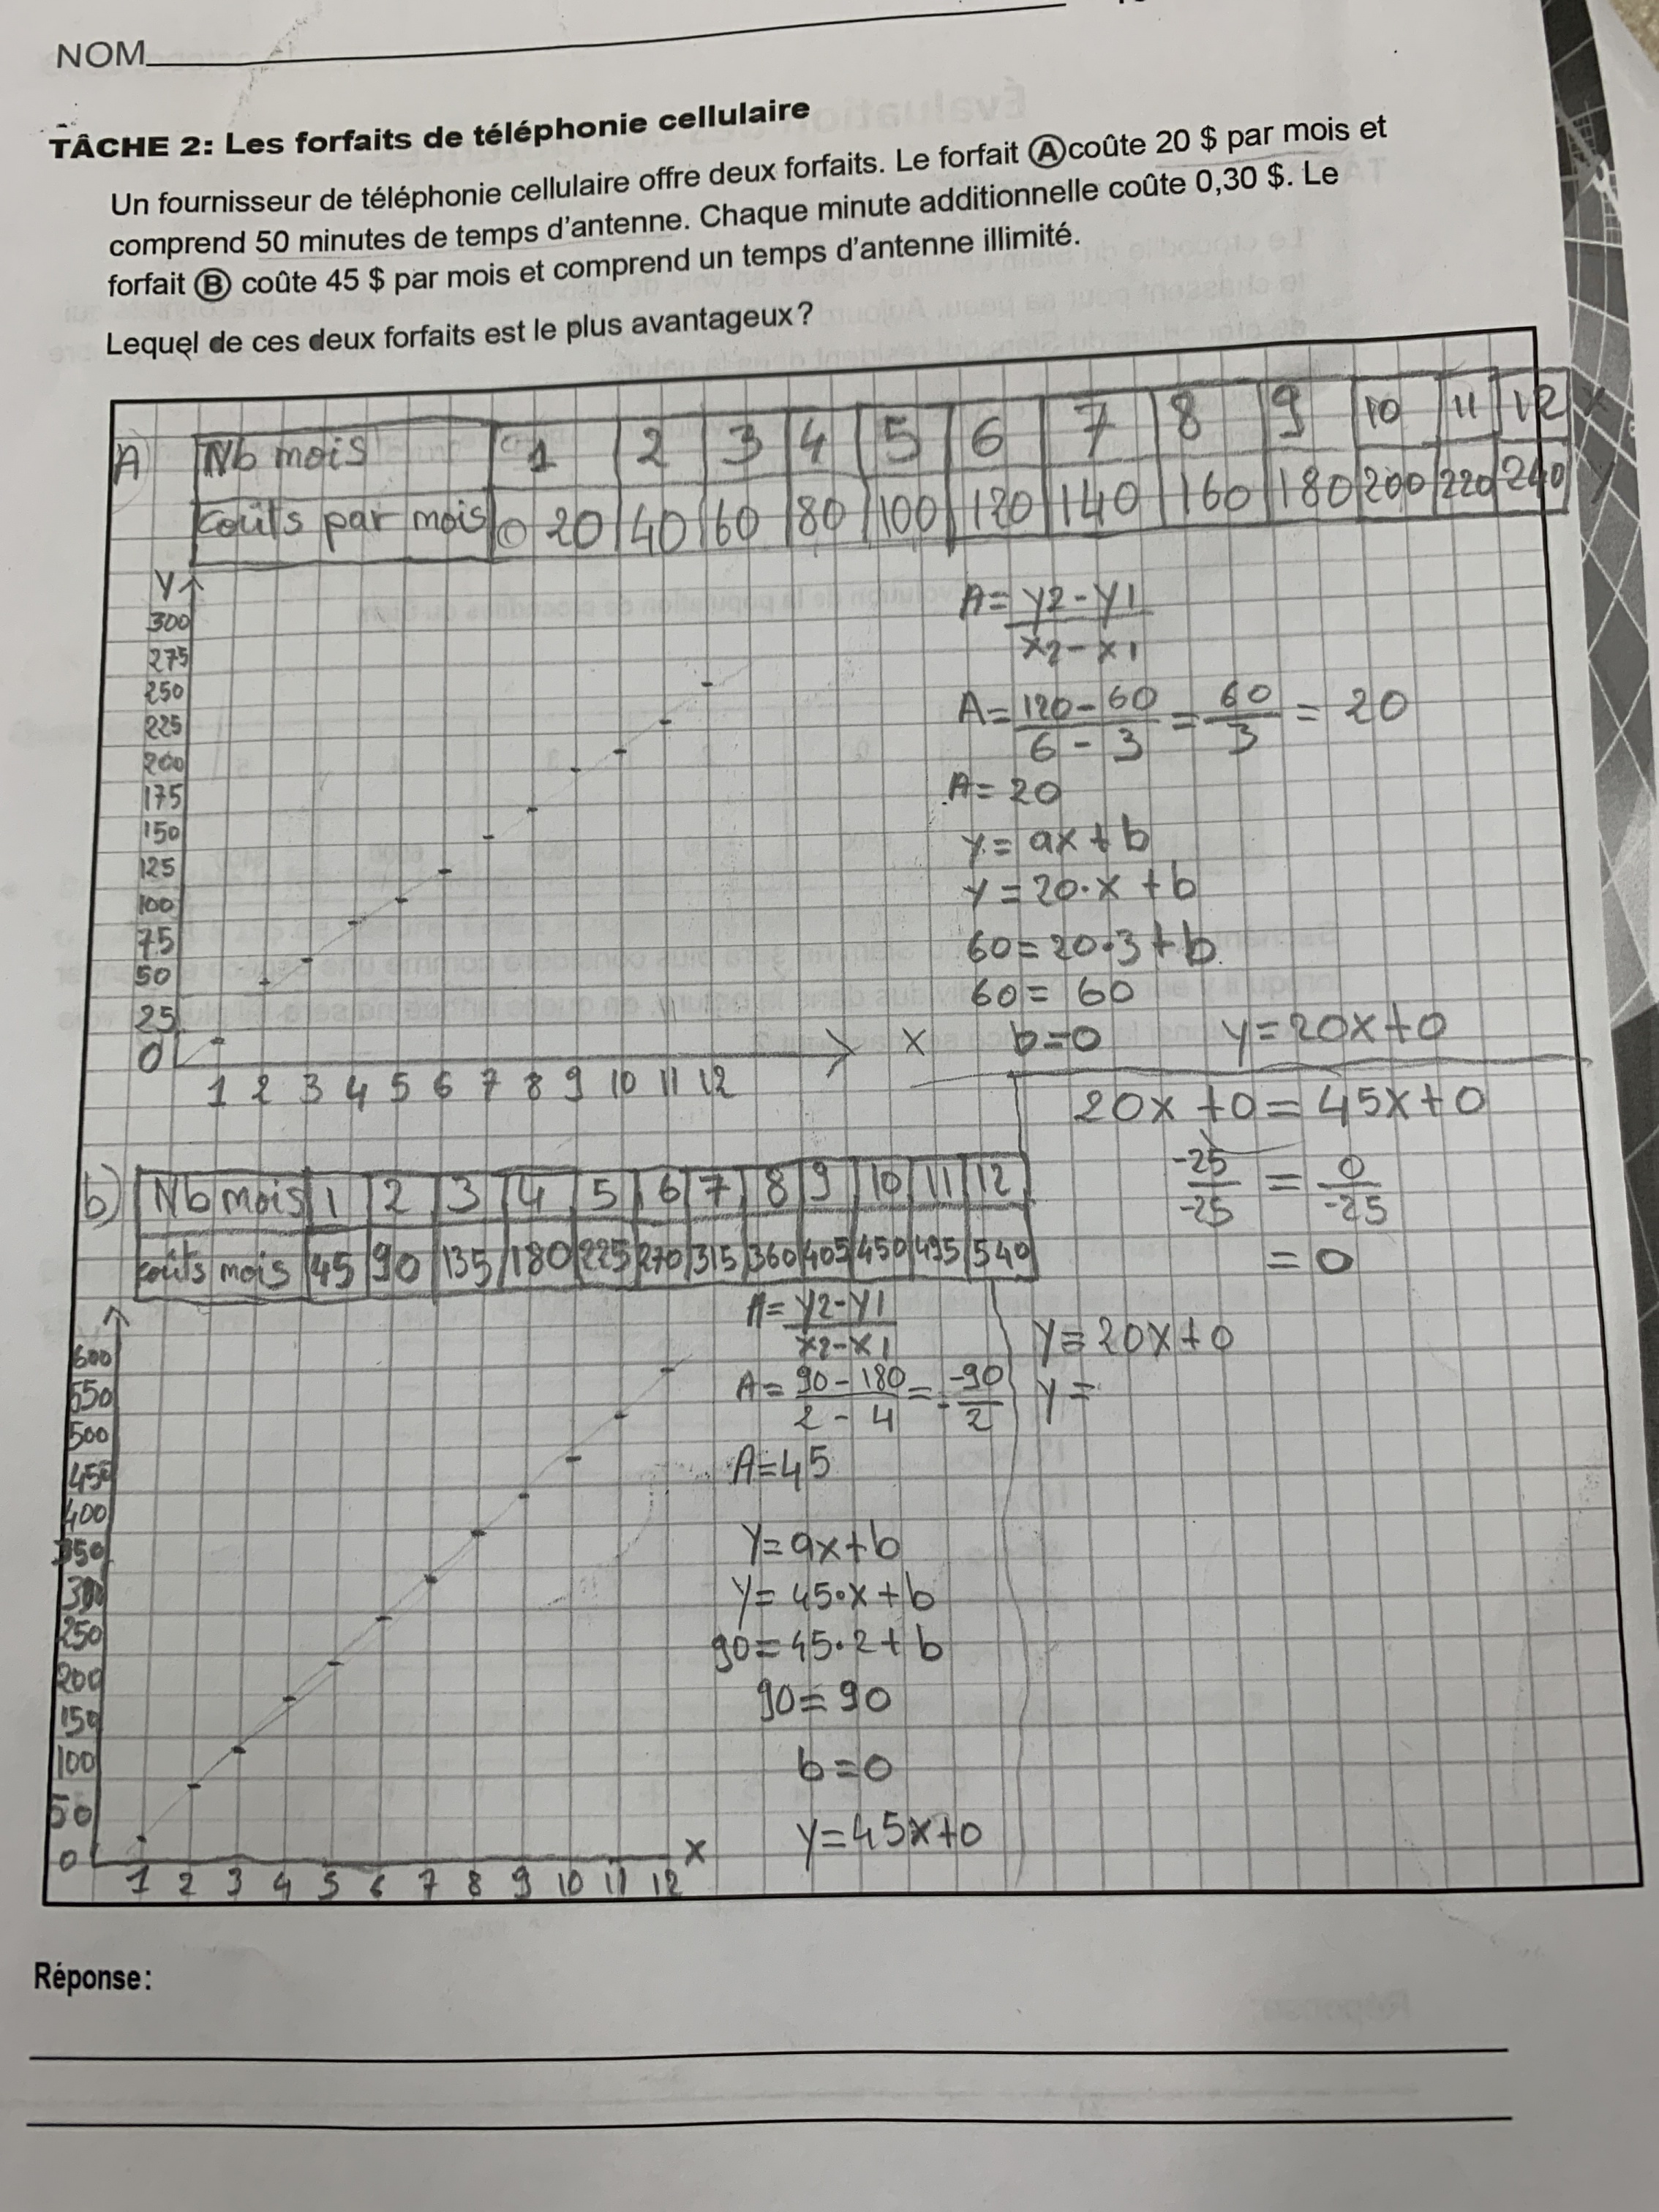 NOM
TÂCHE 2: Les forfaits de téléphonie cellulaire
Un fournisseur de téléphonie cellulaire offre deux forfaits. Le forfait Ⓐ coûte 20 $ par mois et
comprend 50 minutes de temps d'antenne. Chaque minute additionnelle coûte 0,30 $. Le
forfait Ⓑ coûte 45 $ par mois et comprend un temps d'antenne illimité.
Lequel de ces deux forfaits est le plus avantageux?
A) Nb mois 1 2 3 4 5 6 7 8 9 10 11 12 x
Coûts par mois 0 20 40 60 80 100 120 140 160 180 200 220 240 y
Y
300
275
250
225
200
175
150
125
100
75
50
25
0
1 2 3 4 5 6 7 8 9 10 11 12
X
A = y2 - y1
x2 - x1
A = 120 - 60 = 60 = 20
6 - 3 3
A = 20
y = ax + b
y = 20·x + b
60 = 20·3 + b
60 = 60
b = 0 y = 20x + 0
20x + 0 = 45x + 0
-25 = 0
-25 -25
= 0
y = 20x + 0
y =
b) Nb mois 1 2 3 4 5 6 7 8 9 10 11 12
coûts mois 45 90 135 180 225 270 315 360 405 450 495 540
600
550
500
450
400
350
300
250
200
150
100
50
0
1 2 3 4 5 6 7 8 9 10 11 12
x
A = y2 - y1
x2 - x1
A = 90 - 180 = -90
2 - 4 -2
A = 45
y = ax + b
y = 45·x + b
90 = 45·2 + b
90 = 90
b = 0
y = 45x + 0
Réponse: